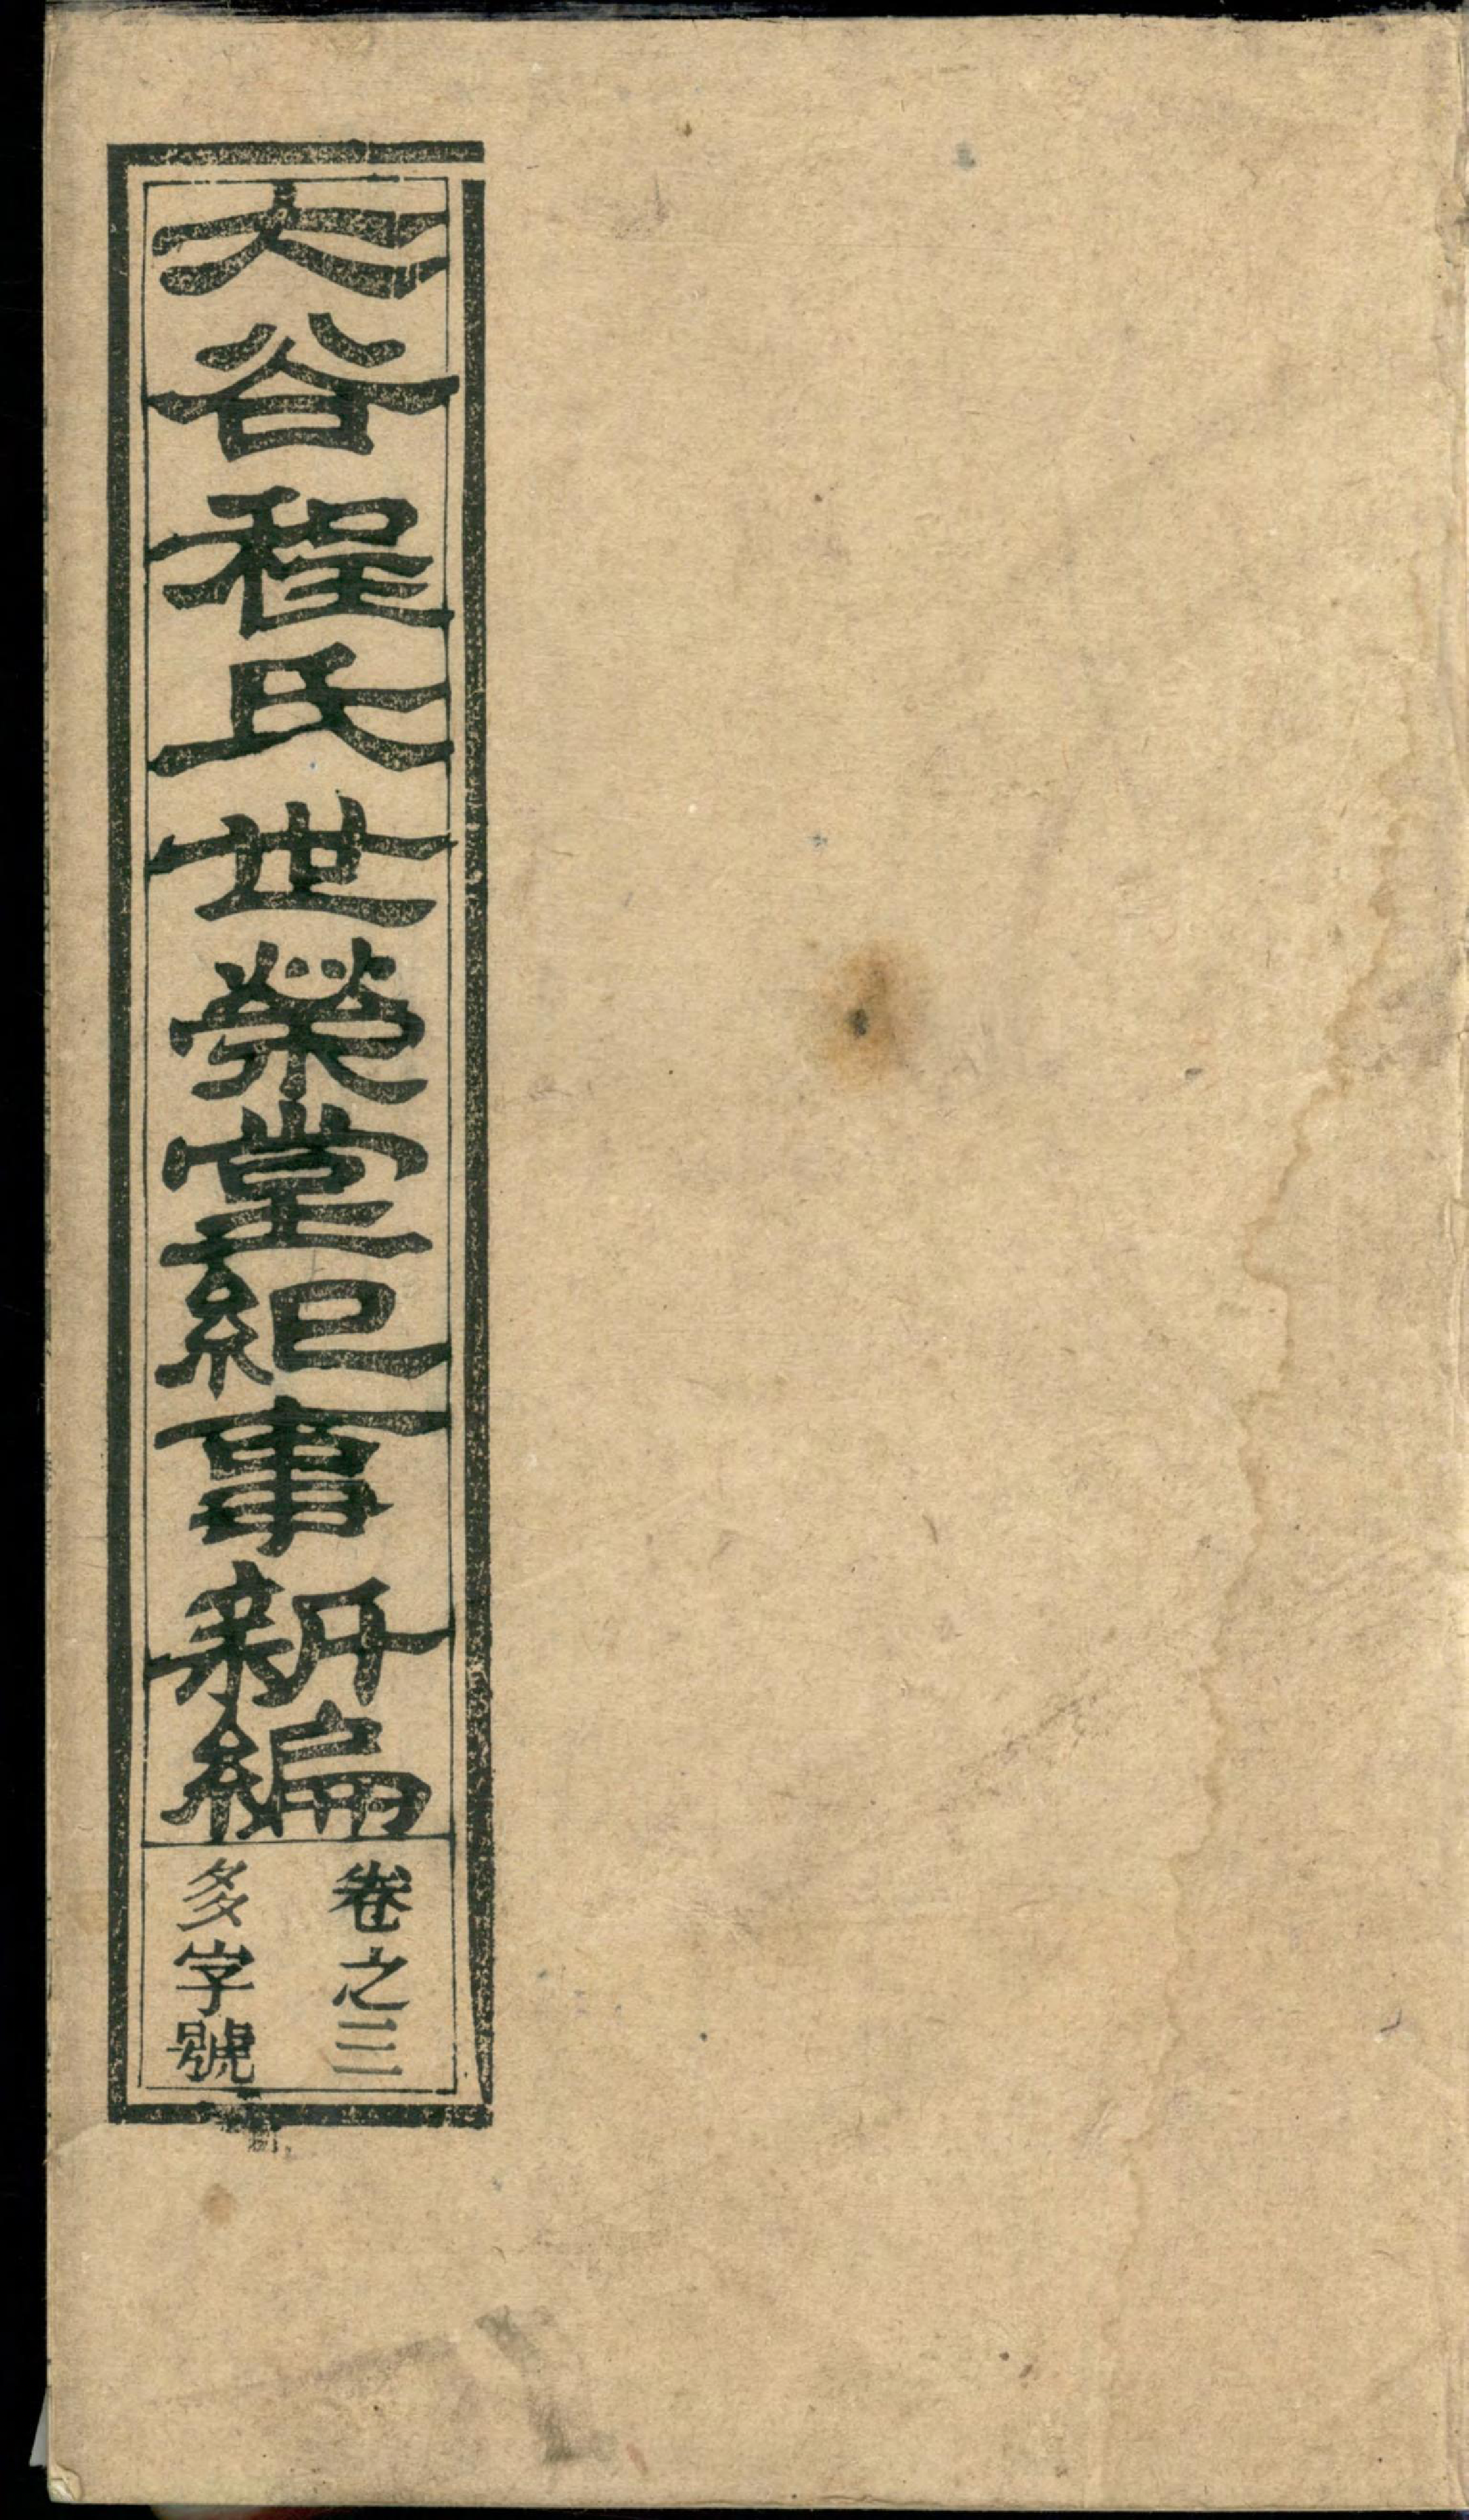 大谷程氏世榮堂紀事新編
卷之三
多字號